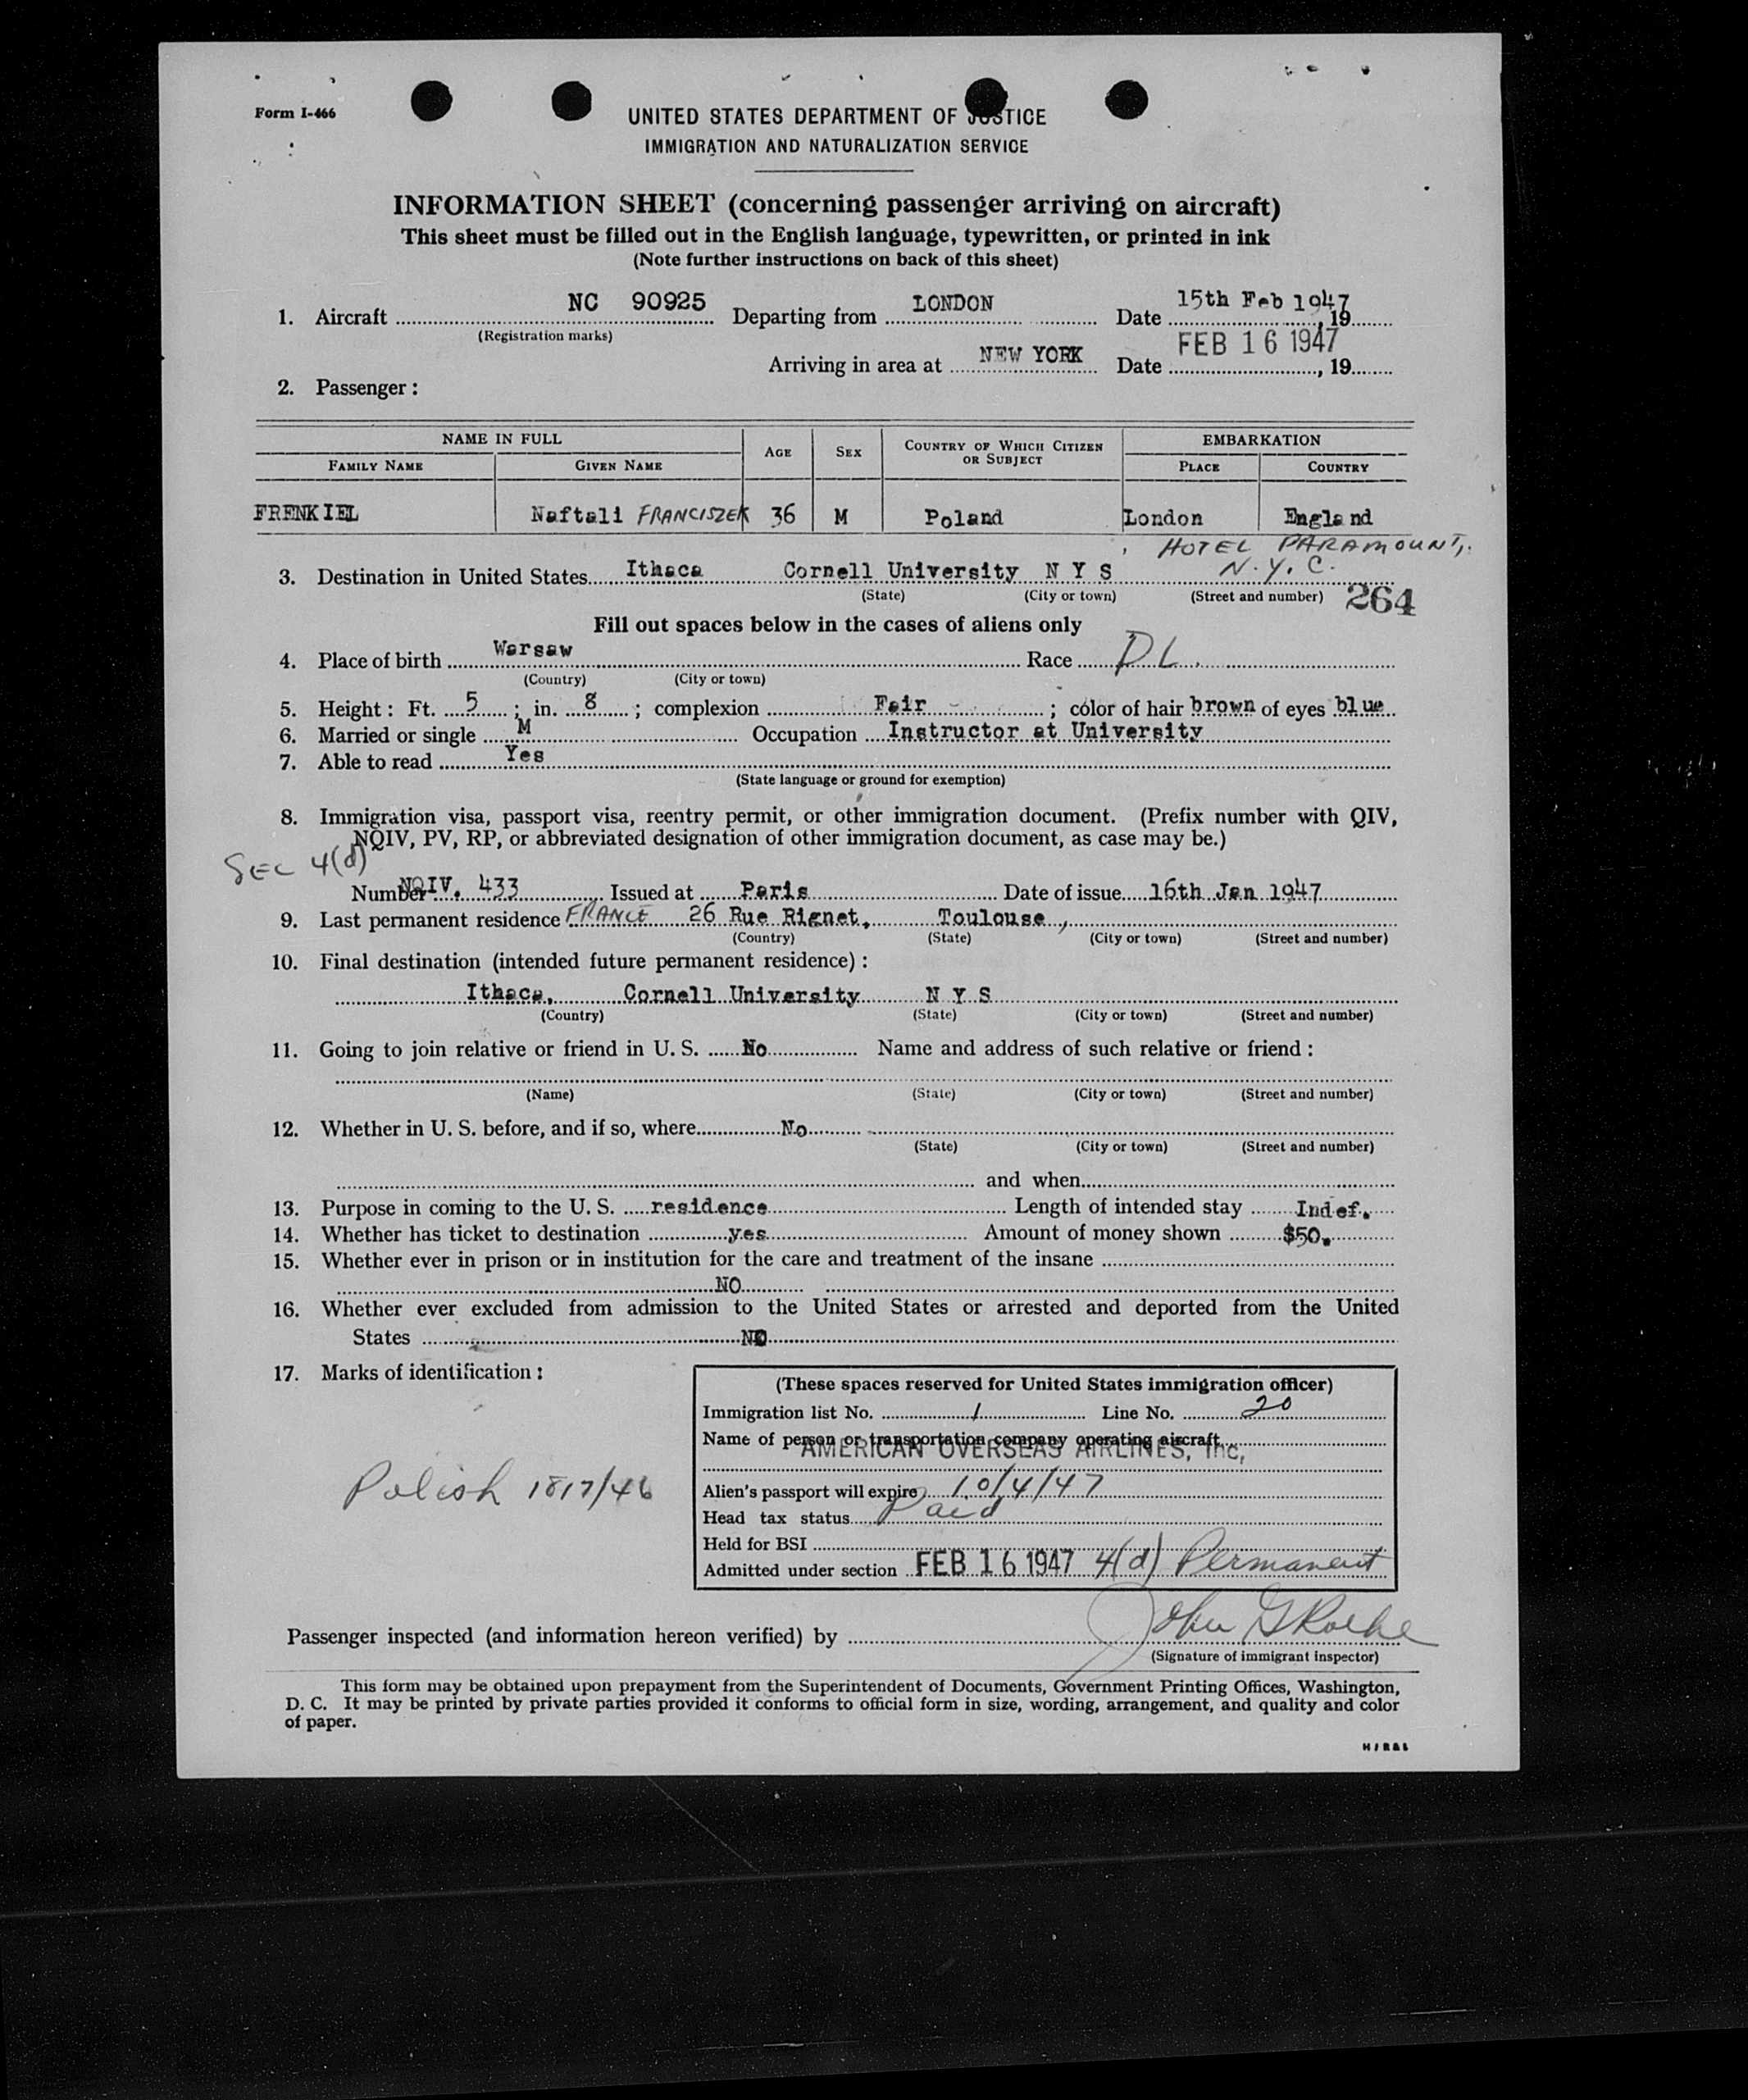 Form I-466
UNITED STATES DEPARTMENT OF JUSTICE
IMMIGRATION AND NATURALIZATION SERVICE
INFORMATION SHEET (concerning passenger arriving on aircraft)
This sheet must be filled out in the English language, typewritten, or printed in ink
(Note further instructions on back of this sheet)
1. Aircraft NC 90925 Departing from LONDON Date 15th Feb 1947, 19
(Registration marks)
Arriving in area at NEW YORK Date FEB 16 1947, 19
2. Passenger :
NAME IN FULL AGE SEX COUNTRY OF WHICH CITIZEN OR SUBJECT EMBARKATION
FAMILY NAME GIVEN NAME PLACE COUNTRY
FRENKIEL Naftali FRANCISZEK 36 M Poland London England
HOTEL PARAMOUNT,
3. Destination in United States Ithaca Cornell University N Y S N.Y.C.
(State) (City or town) (Street and number) 264
Fill out spaces below in the cases of aliens only
4. Place of birth Warsaw Race PL
(Country) (City or town)
5. Height : Ft. 5 ; in. 8 ; complexion Fair ; color of hair brown of eyes blue
6. Married or single M Occupation Instructor at University
7. Able to read Yes
(State language or ground for exemption)
8. Immigration visa, passport visa, reentry permit, or other immigration document. (Prefix number with QIV,
NQIV, PV, RP, or abbreviated designation of other immigration document, as case may be.)
SEC 4(d)
Number NQIV. 433 Issued at Paris Date of issue 16th Jan 1947
9. Last permanent residence FRANCE 26 Rue Rignet, Toulouse,
(Country) (State) (City or town) (Street and number)
10. Final destination (intended future permanent residence) :
Ithaca, Cornell University N Y S
(Country) (State) (City or town) (Street and number)
11. Going to join relative or friend in U. S. No Name and address of such relative or friend :
(Name) (State) (City or town) (Street and number)
12. Whether in U. S. before, and if so, where No
(State) (City or town) (Street and number)
and when
13. Purpose in coming to the U. S. residence Length of intended stay Indef.
14. Whether has ticket to destination yes Amount of money shown $50.
15. Whether ever in prison or in institution for the care and treatment of the insane
NO
16. Whether ever excluded from admission to the United States or arrested and deported from the United
States NO
17. Marks of identification :
(These spaces reserved for United States immigration officer)
Immigration list No. 1 Line No. 20
Name of person or transportation company operating aircraft
AMERICAN OVERSEAS AIRLINES, Inc,
Polish 1817/46
Alien's passport will expire 10/4/47
Head tax status Paid
Held for BSI
Admitted under section FEB 16 1947 4(d) Permanent
Passenger inspected (and information hereon verified) by John G Roche
(Signature of immigrant inspector)
This form may be obtained upon prepayment from the Superintendent of Documents, Government Printing Offices, Washington,
D. C. It may be printed by private parties provided it conforms to official form in size, wording, arrangement, and quality and color
of paper.